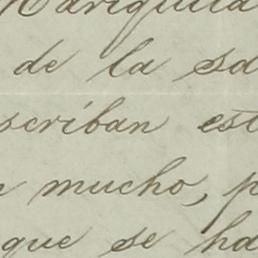 Mariquita
de la sa
scriban est
mucho, p
que se ha